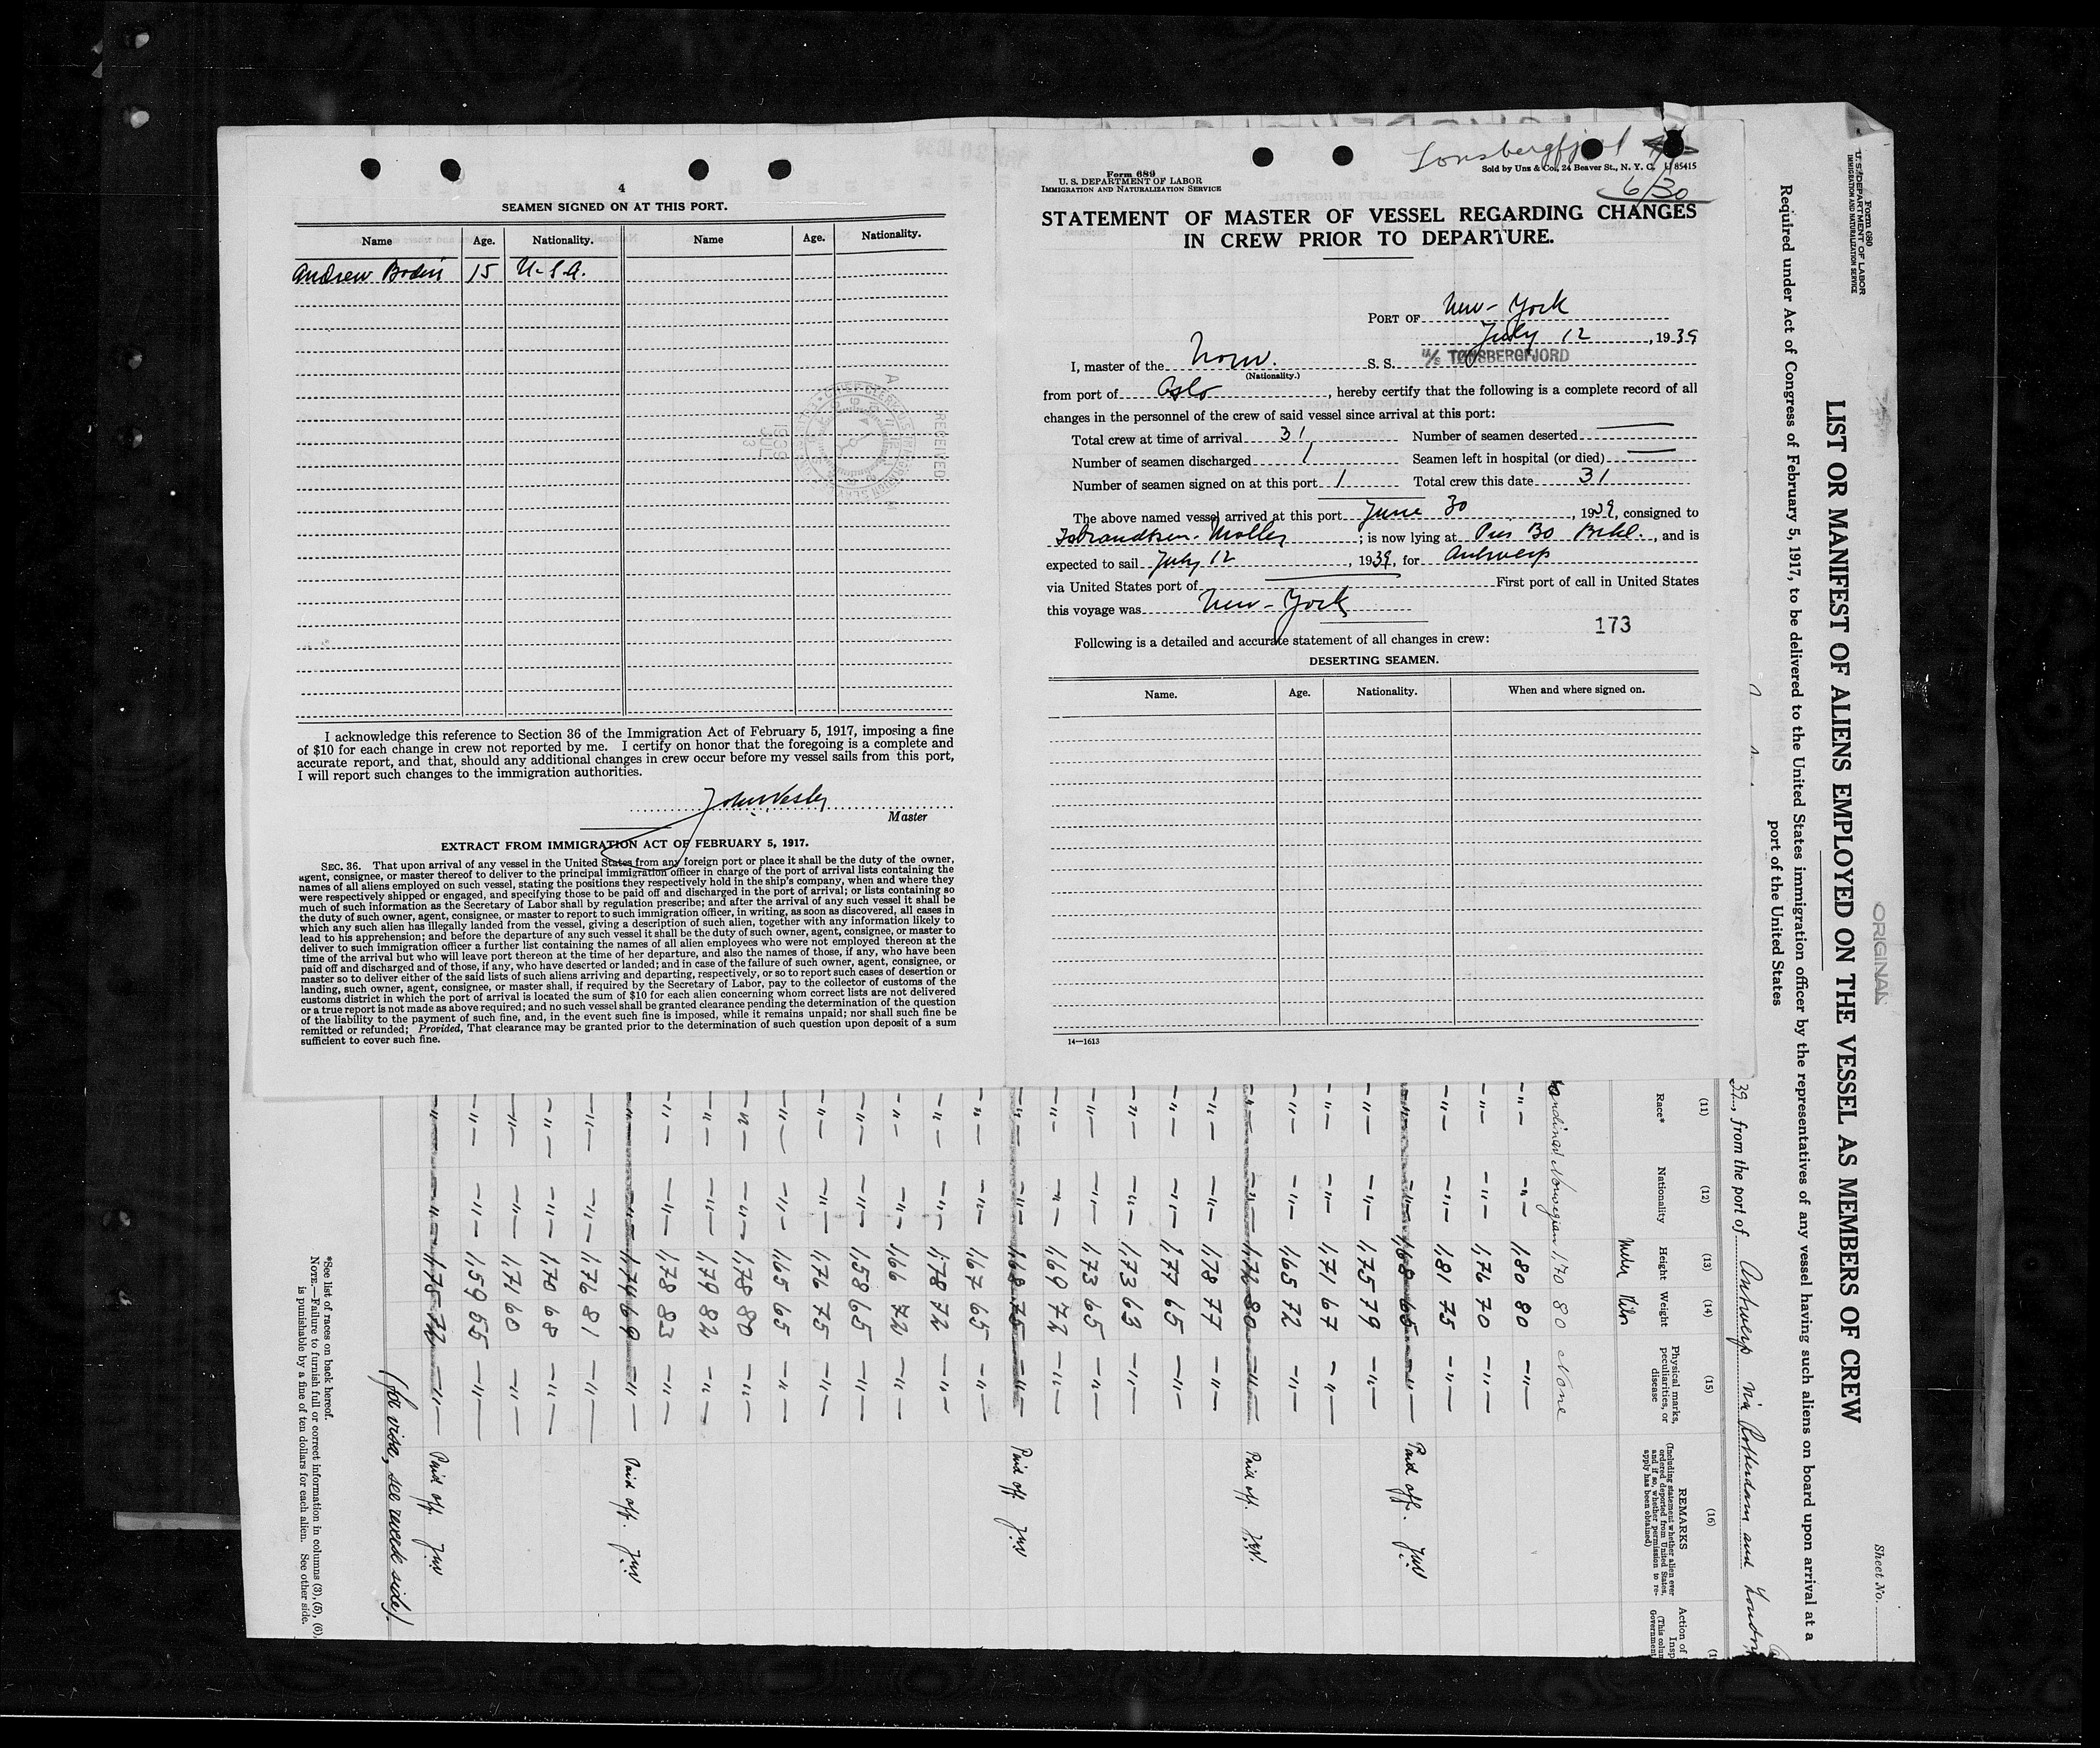 4
SEAMEN SIGNED ON AT THIS PORT.
Name Age. Nationality. Name Age. Nationality.
Andrew Bodin 15 U.S.A.
RECEIVED
1939 JUL
I acknowledge this reference to Section 36 of the Immigration Act of February 5, 1917, imposing a fine
of $10 for each change in crew not reported by me. I certify on honor that the foregoing is a complete and
accurate report, and that, should any additional changes in crew occur before my vessel sails from this port,
I will report such changes to the immigration authorities.
Master
EXTRACT FROM IMMIGRATION ACT OF FEBRUARY 5, 1917.
SEC. 36. That upon arrival of any vessel in the United States from any foreign port or place it shall be the duty of the owner,
agent, consignee, or master thereof to deliver to the principal immigration officer in charge of the port of arrival lists containing the
names of all aliens employed on such vessel, stating the positions they respectively hold in the ship's company, when and where they
were respectively shipped or engaged, and specifying those to be paid off and discharged in the port of arrival; or lists containing so
much of such information as the Secretary of Labor shall by regulation prescribe; and after the arrival of any such vessel it shall be
the duty of such owner, agent, consignee, or master to report to such immigration officer, in writing, as soon as discovered, all cases in
which any such alien has illegally landed from the vessel, giving a description of such alien, together with any information likely to
lead to his apprehension; and before the departure of any such vessel it shall be the duty of such owner, agent, consignee, or master to
deliver to such immigration officer a further list containing the names of all alien employees who were not employed thereon at the
time of the arrival but who will leave port thereon at the time of her departure, and also the names of those, if any, who have been
paid off and discharged and of those, if any, who have deserted or landed; and in case of the failure of such owner, agent, consignee, or
master so to deliver either of the said lists of such aliens arriving and departing, respectively, or so to report such cases of desertion or
landing, such owner, agent, consignee, or master shall, if required by the Secretary of Labor, pay to the collector of customs of the
customs district in which the port of arrival is located the sum of $10 for each alien concerning whom correct lists are not delivered
or a true report is not made as above required; and no such vessel shall be granted clearance pending the determination of the question
of the liability to the payment of such fine, and, in the event such fine is imposed, while it remains unpaid; nor shall such fine be
remitted or refunded; Provided, That clearance may be granted prior to the determination of such question upon deposit of a sum
sufficient to cover such fine.
Tonsbergfjord
Form 689
U. S. DEPARTMENT OF LABOR
IMMIGRATION AND NATURALIZATION SERVICE
Sold by Unz & Co., 24 Beaver St., N. Y. C. 85415
6/30
STATEMENT OF MASTER OF VESSEL REGARDING CHANGES
IN CREW PRIOR TO DEPARTURE.
PORT OF New-York
July 12, 1939
I, master of the Norw. S. S. M/S TØNSBERGFJORD
(Nationality.)
from port of Oslo, hereby certify that the following is a complete record of all
changes in the personnel of the crew of said vessel since arrival at this port:
Total crew at time of arrival 31 Number of seamen deserted —
Number of seamen discharged 1 Seamen left in hospital (or died) —
Number of seamen signed on at this port 1 Total crew this date 31
The above named vessel arrived at this port June 30, 1939, consigned to
Isbrandtsen-Moller; is now lying at Pier 30 Bkl., and is
expected to sail July 12, 1939, for Antwerp
via United States port of — First port of call in United States
this voyage was New-York
173
Following is a detailed and accurate statement of all changes in crew:
DESERTING SEAMEN.
Name. Age. Nationality. When and where signed on.
14—1613
Form 680
U. S. DEPARTMENT OF LABOR
IMMIGRATION AND NATURALIZATION SERVICE
ORIGINAL
Sheet No.
LIST OR MANIFEST OF ALIENS EMPLOYED ON THE VESSEL AS MEMBERS OF CREW
Required under Act of Congress of February 5, 1917, to be delivered to the United States immigration officer by the representatives of any vessel having such aliens on board upon arrival at a
port of the United States
39, from the port of Antwerp via Rotterdam and London
(11) (12) (13) (14) (15) (16)
Race* Nationality Height Weight Physical marks, peculiarities, or disease REMARKS
(Including statement whether alien ever ordered deported from United States, and if so, whether permission to reapply has been obtained)
Action of
Meter Kilo
Norwegian 1,70 80 None
—"— —"— 1,80 80 —"—
—"— —"— 1,76 70 —"—
—"— —"— 1,81 75 —"—
—"— —"— 1,68 65 —"— Paid off.
—"— —"— 1,75 79 —"—
—"— —"— 1,71 67 —"—
—"— —"— 1,65 72 —"—
—"— —"— 1,72 80 —"— Paid off.
—"— —"— 1,78 77 —"—
—"— —"— 1,77 65 —"—
—"— —"— 1,73 63 —"—
—"— —"— 1,73 65 —"—
—"— —"— 1,69 72 —"—
—"— —"— 1,68 75 —"— Paid off.
—"— —"— 1,67 65 —"—
—"— —"— 1,78 72 —"—
—"— —"— 1,66 72 —"—
—"— —"— 1,58 65 —"—
—"— —"— 1,76 75 —"—
—"— —"— 1,65 65 —"—
—"— —"— 1,78 80 —"—
—"— —"— 1,79 82 —"—
—"— —"— 1,78 83 —"—
—"— —"— 1,74 69 —"— Paid off.
—"— —"— 1,76 81 —"—
—"— —"— 1,70 68 —"—
—"— —"— 1,71 60 —"—
—"— —"— 1,59 55 —"—
—"— —"— 1,75 72 —"— Paid off.
(for visa, see reverse side).
*See list of races on back hereof.
NOTE.—Failure to furnish full or correct information in columns (3), (5), (6),
is punishable by a fine of ten dollars for each alien. See other side.